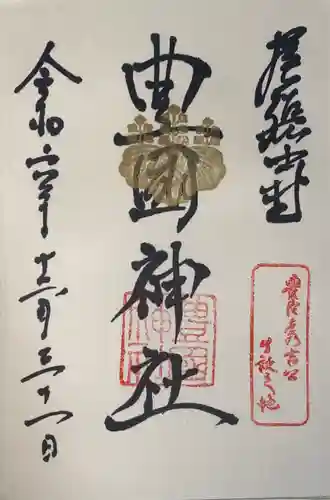 尾張中村
豊臣秀吉公
生誕之地
豊國神社
令和六年十二月三十一日